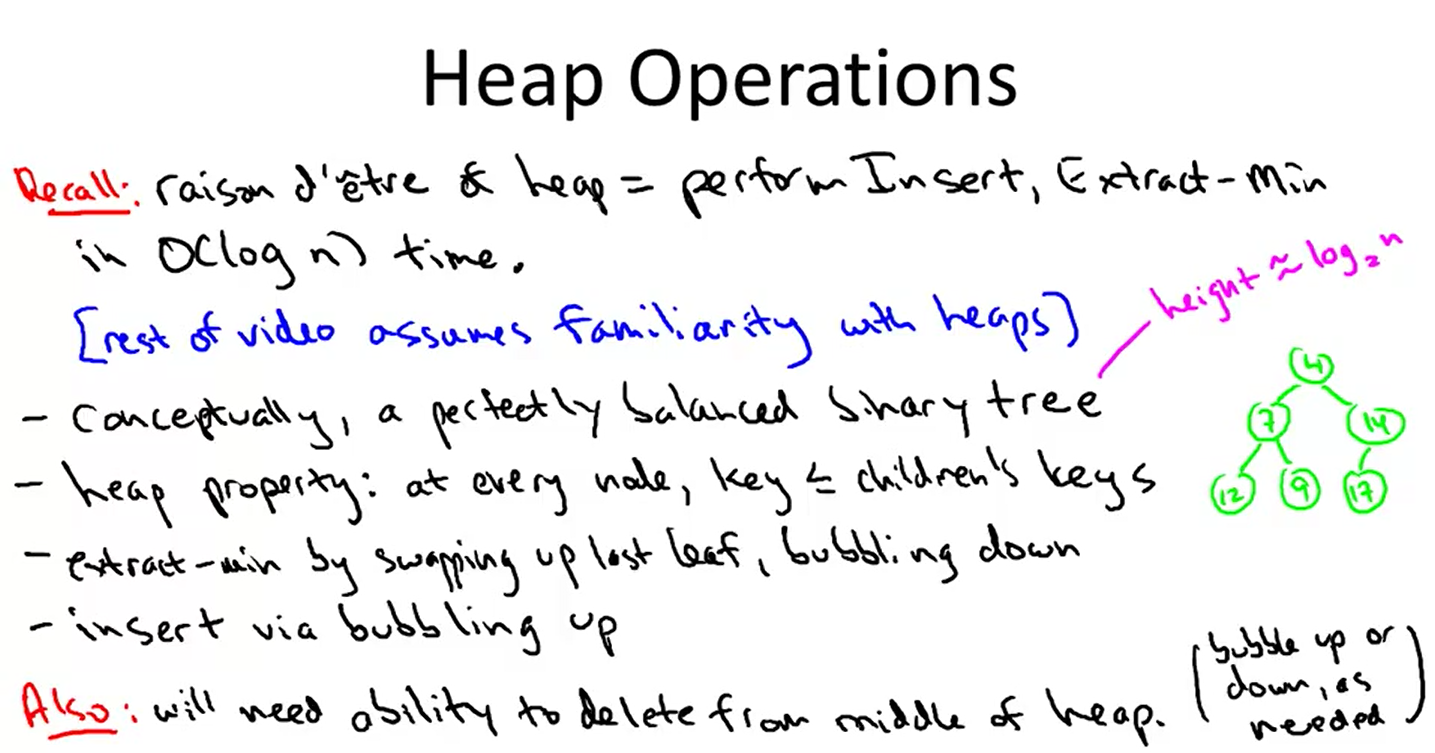 Heap Operations
Recall: raison d'être of heap = perform Insert, Extract-Min
in O(log n) time.
[rest of video assumes familiarity with heaps]
height ≈ log₂ n
- conceptually, a perfectly balanced binary tree
4
7 14
12 9 17
- heap property: at every node, key ≤ children's keys
- extract-min by swapping up last leaf, bubbling down
- insert via bubbling up
Also: will need ability to delete from middle of heap.
(bubble up or
down, as
needed)